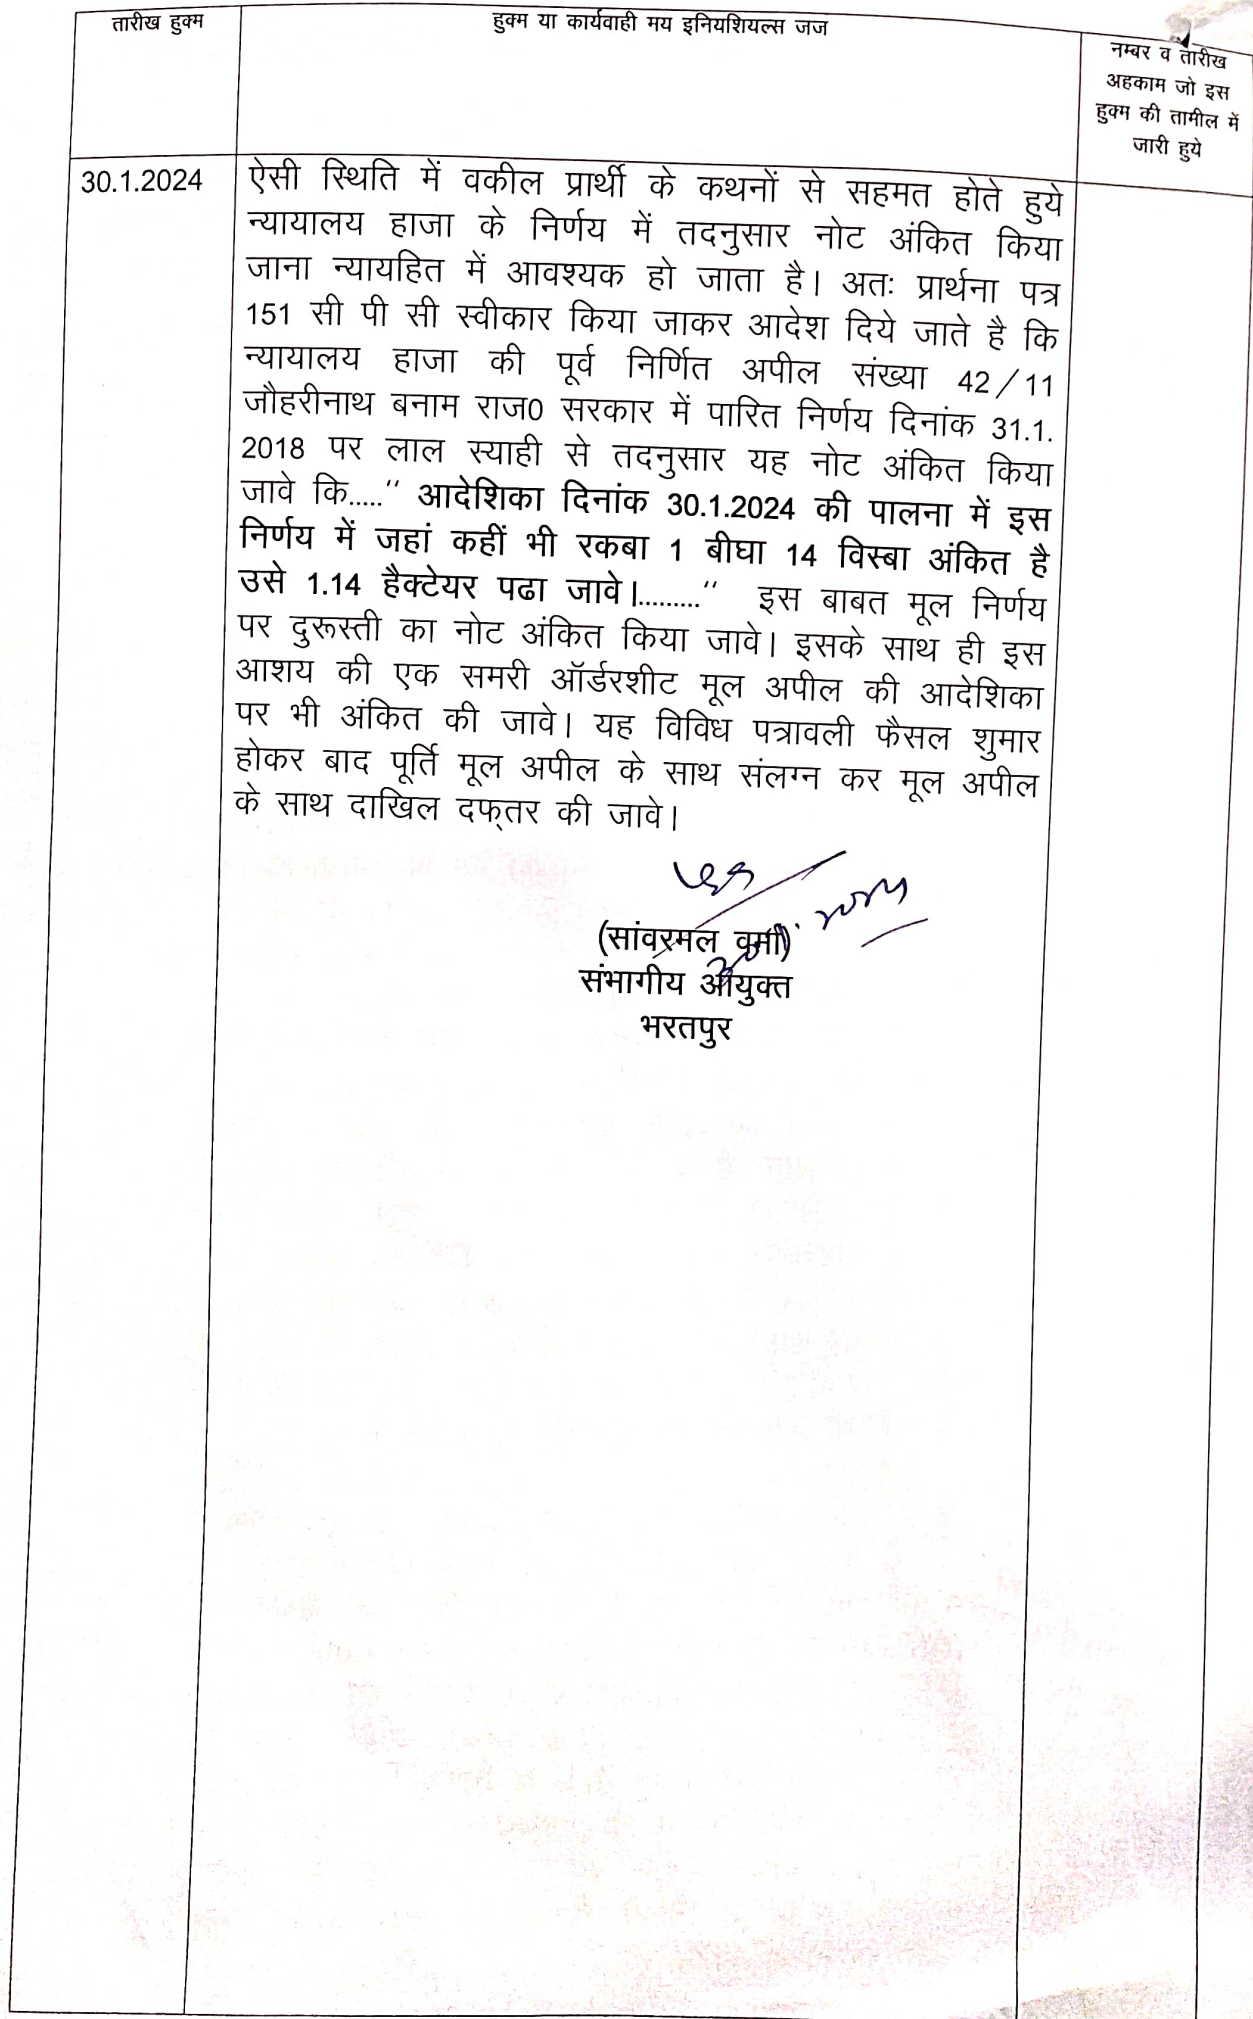 तारीख हुक्म
हुक्म या कार्यवाही मय इनियशियल्स जज
नम्बर व तारीख
अहकाम जो इस
हुक्म की तामील में
जारी हुये
30.1.2024
ऐसी स्थिति में वकील प्रार्थी के कथनों से सहमत होते हुये
न्यायालय हाजा के निर्णय में तदनुसार नोट अंकित किया
जाना न्यायहित में आवश्यक हो जाता है। अतः प्रार्थना पत्र
151 सी पी सी स्वीकार किया जाकर आदेश दिये जाते है कि
न्यायालय हाजा की पूर्व निर्णित अपील संख्या 42/11
जौहरीनाथ बनाम राज0 सरकार में पारित निर्णय दिनांक 31.1.
2018 पर लाल स्याही से तदनुसार यह नोट अंकित किया
जावे कि.....“ आदेशिका दिनांक 30.1.2024 की पालना में इस
निर्णय में जहां कहीं भी रकबा 1 बीघा 14 विस्बा अंकित है
उसे 1.14 हैक्टेयर पढा जावे।.........“ इस बाबत मूल निर्णय
पर दुरूस्ती का नोट अंकित किया जावे। इसके साथ ही इस
आशय की एक समरी ऑर्डरशीट मूल अपील की आदेशिका
पर भी अंकित की जावे। यह विविध पत्रावली फैसल शुमार
होकर बाद पूर्ति मूल अपील के साथ संलग्न कर मूल अपील
के साथ दाखिल दफ्तर की जावे।
(सांवरमल वर्मा)
संभागीय आयुक्त
भरतपुर